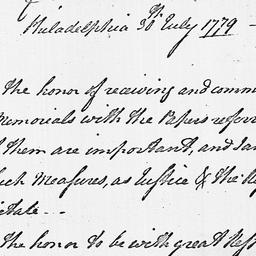 Philadelphia 30th July 1779 -
The honor of receiving and comm
Memorials with the Papers referr
them are important, and
such Measures, as Justice & the
ctate - -
The honor to be with great Resp